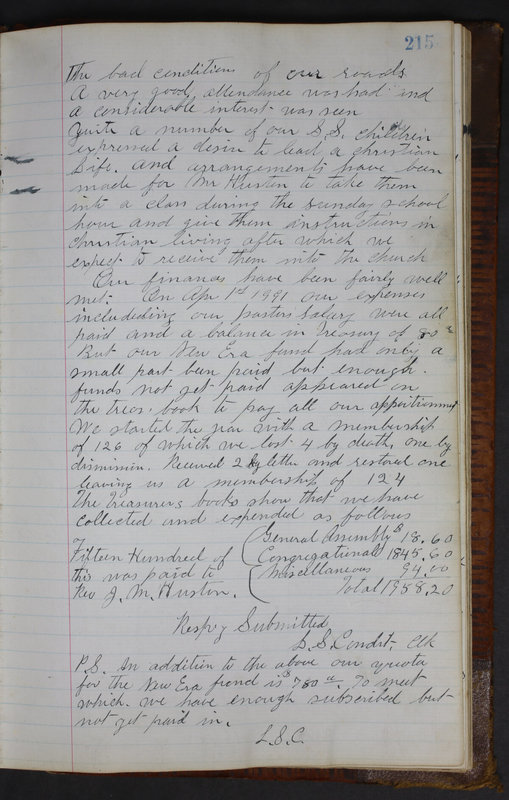 215
The bad condition of our roads
A very good attendance was had and
a considerable interest was seen
Quite a number of our S.S. children
expressed a desire to lead a christian
life. And arrangements have been
made for Mr Huston to take them
into a class during the sunday school
hour and give them instructions in
christian living after which we
expect to receive them into the church
Our finances have been fairly well
met. On Apr 1st 1991 our expenses
includeding our pastors salary were all
paid and a balance in Treasury of 80
But our New Era fund had only a
small part been paid but enough
funds not yet paid appeared on
the treas. book to pay all our apportionment
We started the year with a membership
of 126 of which we lost 4 by death, one by
dismission. Received 2 by letter and restored one
leaving us a membership of 124
The Treasurers books show that we have
collected and expended as follows
General Assembly $18.60
Fifteen Hundred of Congregational 1845.60
this was paid to Miscellaneous 94.00
Rev J. M. Huston. Total 1958.20
Respy Submitted
L. S. Condit, Clk
P.S. In addition to the above our quota
for the New Era fund is $780 To meet
which we have enough subscribed but
not yet paid in.
L.S.C.